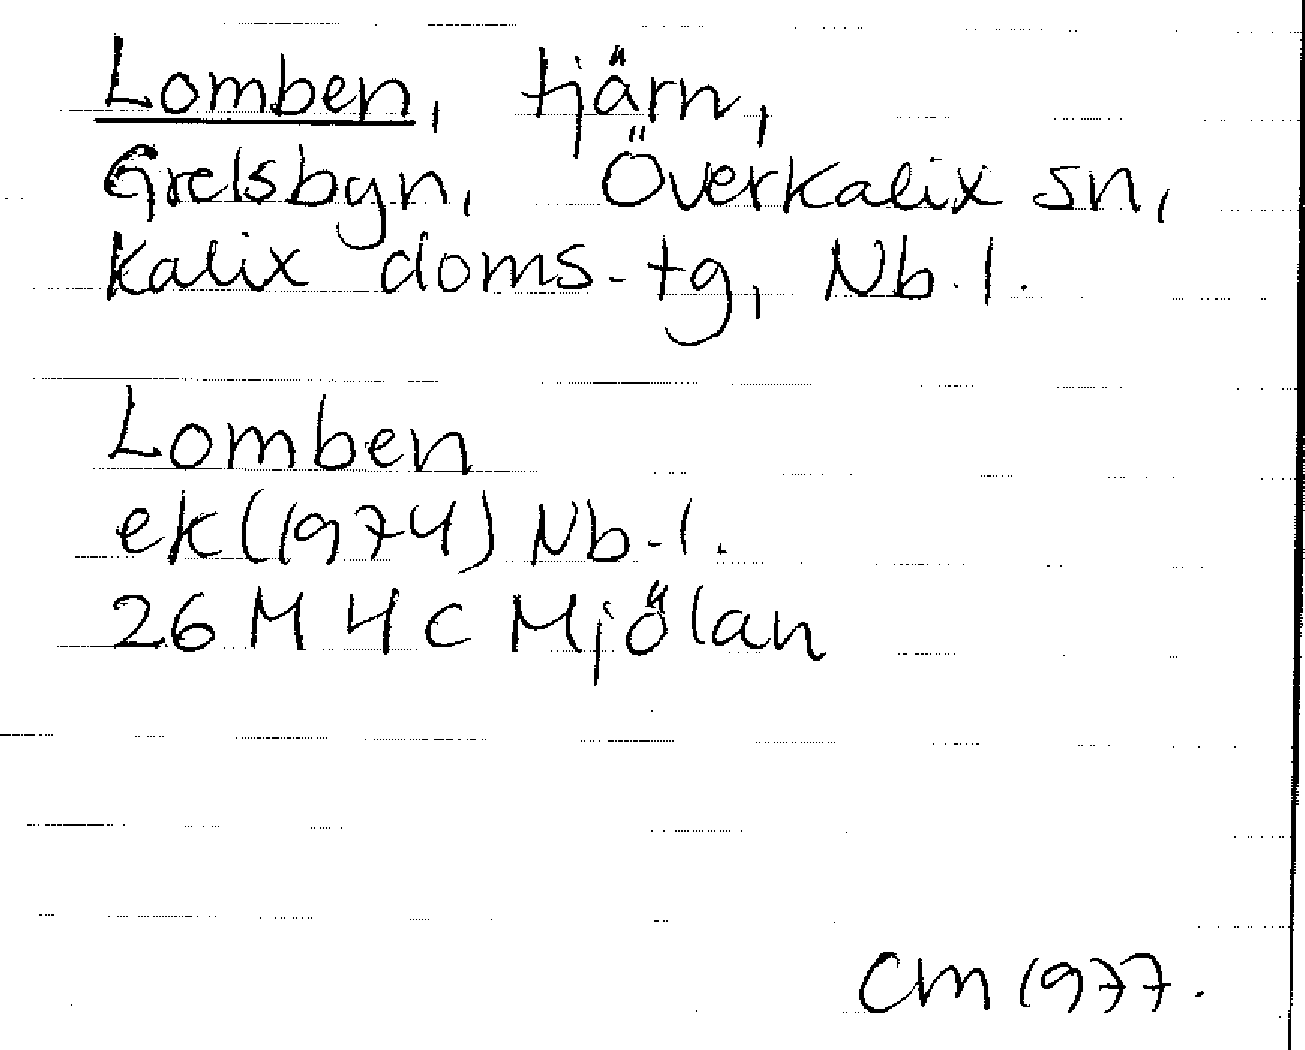 Lomben, tjärn,
Grelsbyn, Överkalix sn,
Kalix doms.tg, Nb.l.
Lomben
ek(1974) Nb.l.
26 M 4 c Mjölan
CM 1977.